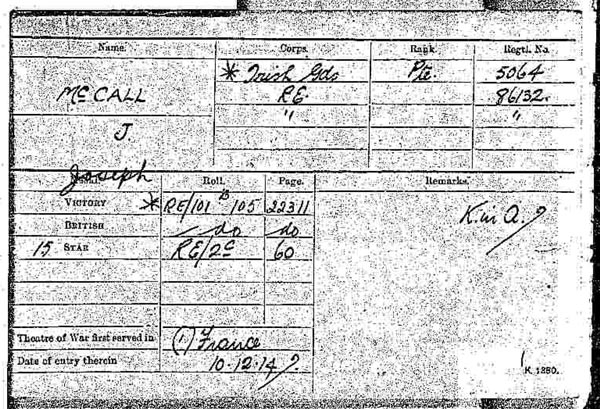 Name. Corps. Rank. Regtl. No.
* Irish Gds Pte. 5064
McCALL R.E. 86132.
J. " "
Joseph
Roll. Page. Remarks.
VICTORY * RE/101 B 105 22311 K. in A.
BRITISH do do
15 STAR RE/2C 60
Theatre of War first served in (1) France
Date of entry therein 10.12.14
K 1380.